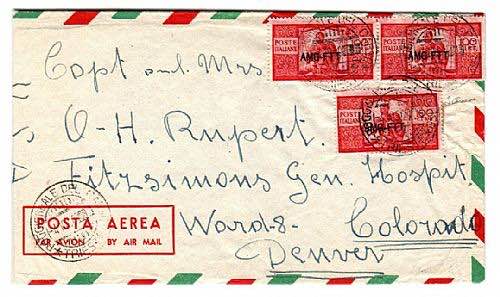 POSTE ITALIANE
AMG-FTT
POSTE ITALIANE
AMG-FTT
100 LIRE
POSTE ITALIANE
100
AMG-FTT
Capt and Mrs
O-H. Rupert.
Fitzsimons Gen. Hospit.
Ward-8- Colorado
Denver
POSTA AEREA
PAR AVION BY AIR MAIL